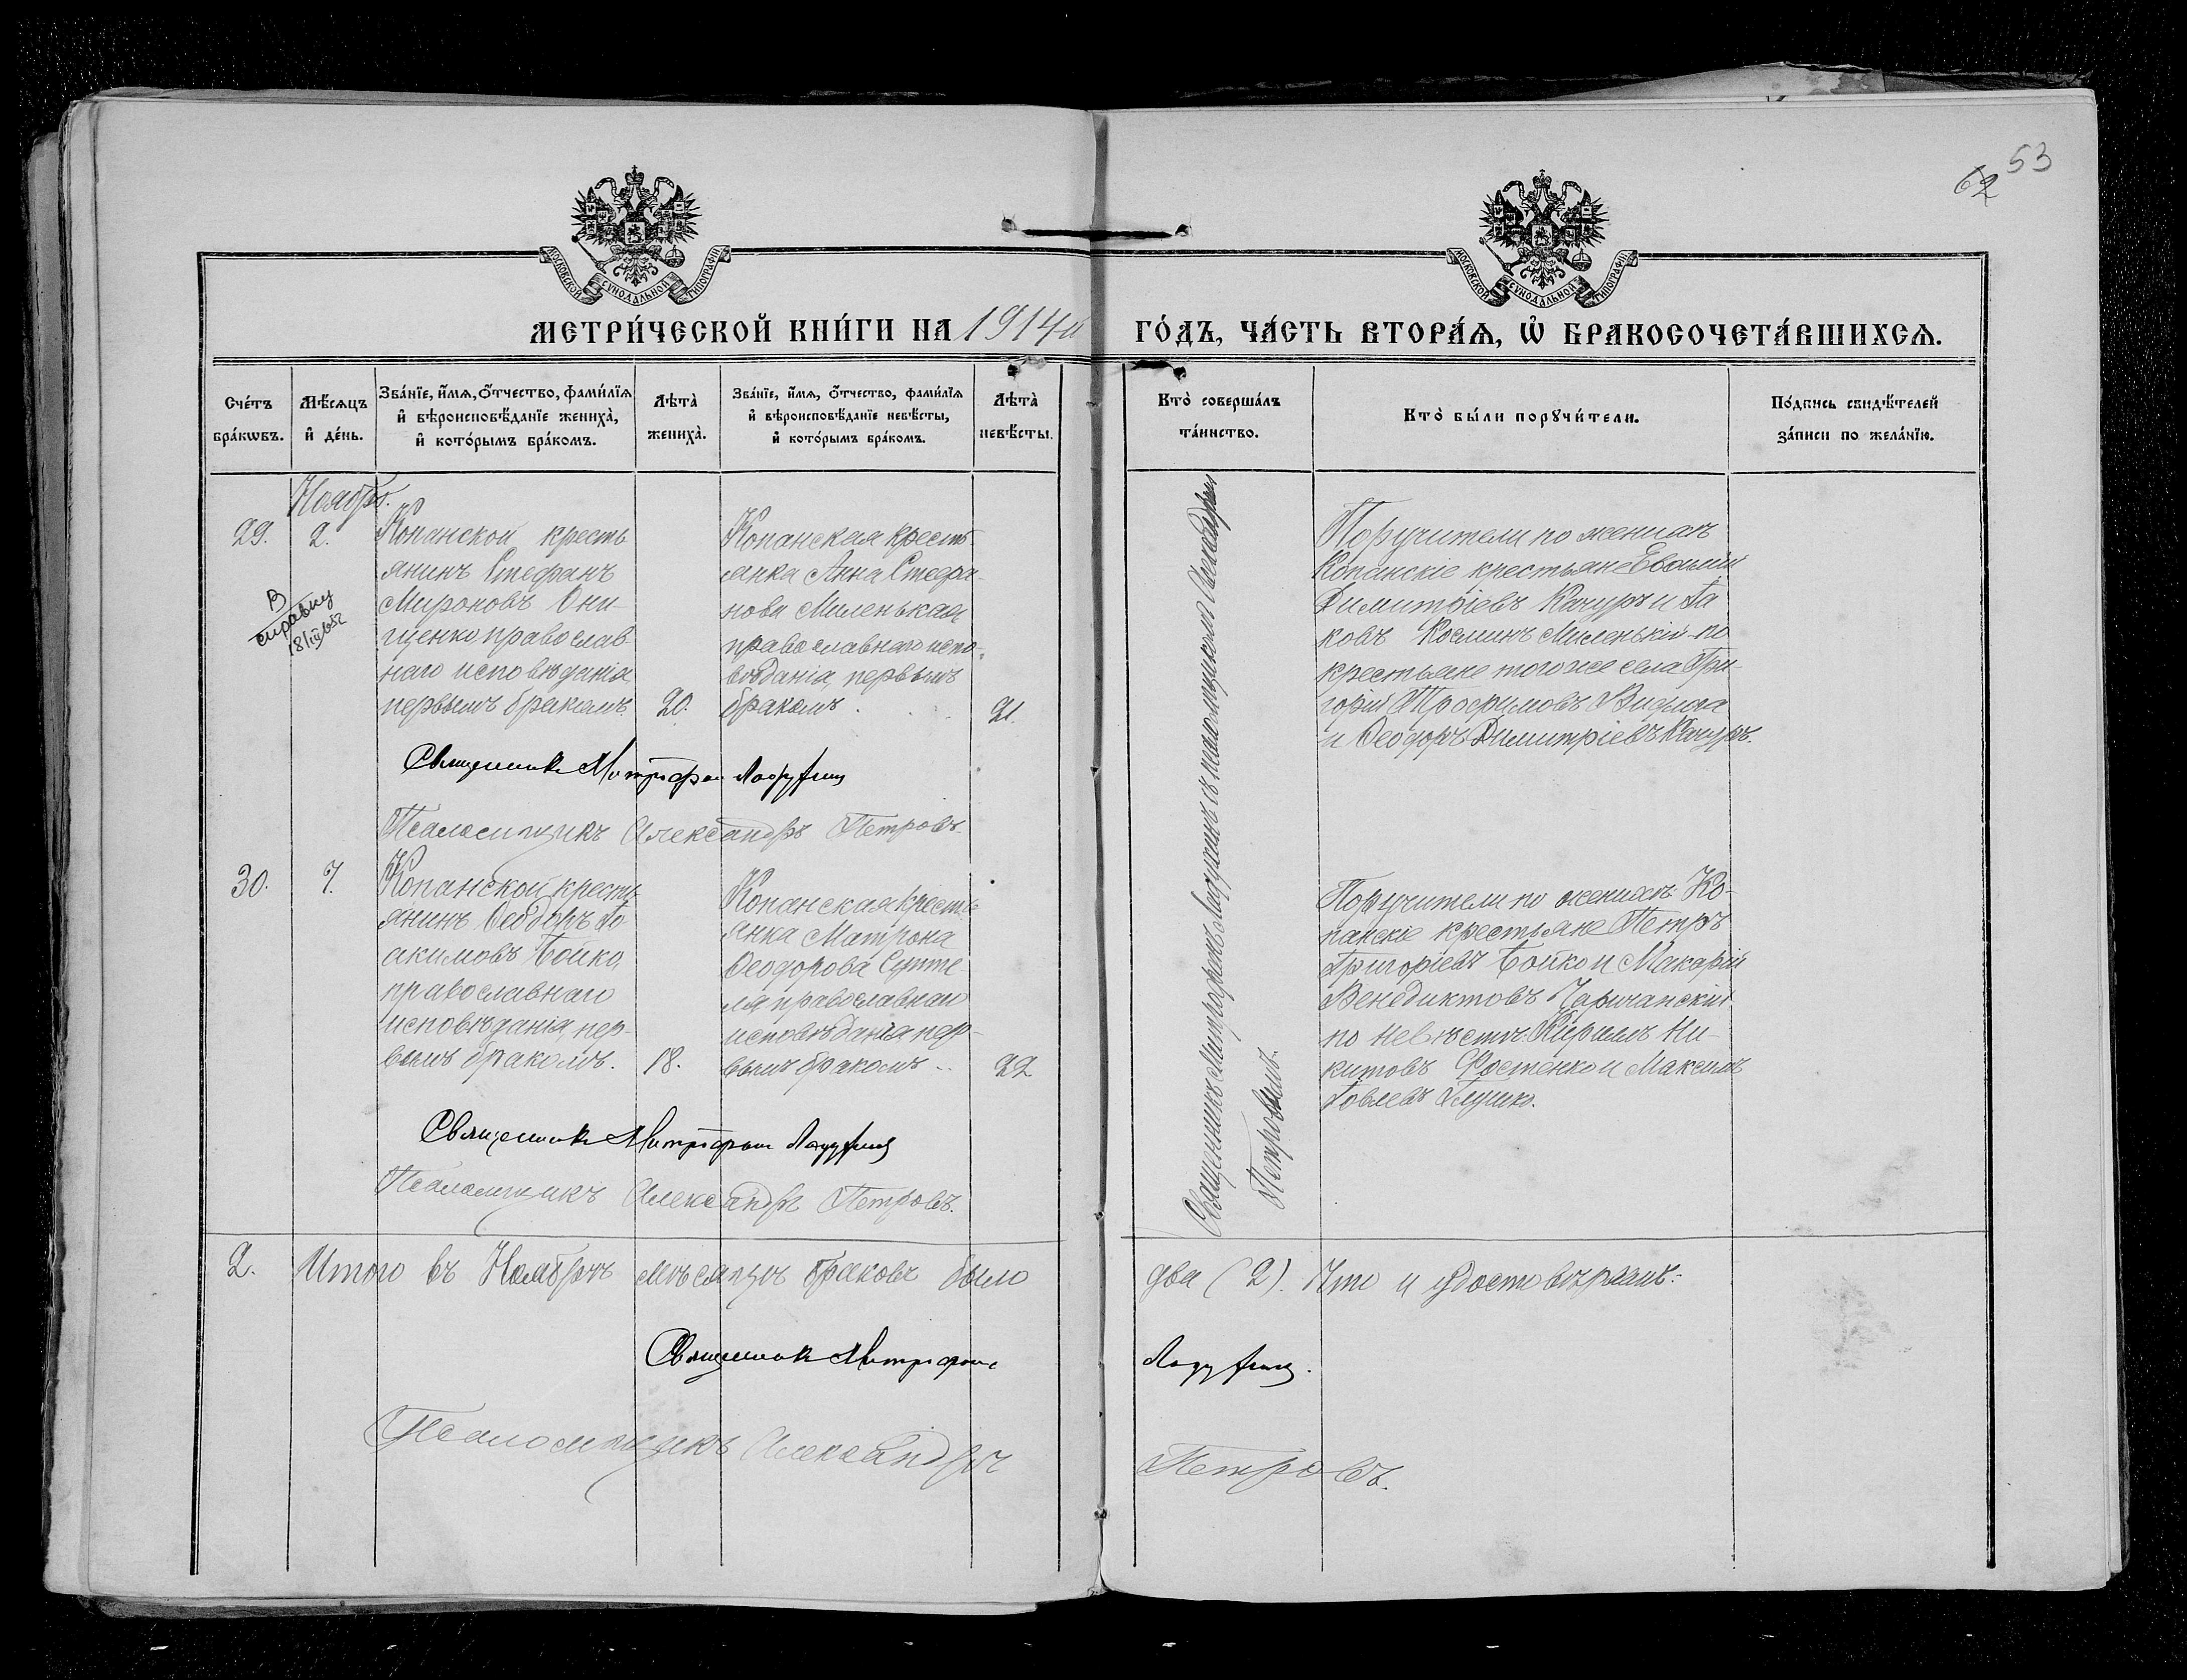 53
62
МОСКОВСКОЙ СУНОДАЛЬНОЙ ТИПОГРАФІИ
МОСКОВСКОЙ СУНОДАЛЬНОЙ ТИПОГРАФІИ
МЕТРИ́ЧЕСКОЙ КНИ́ГИ НА 1914й ГО́ДЪ, ЧА́СТЬ ВТОРА́Ѧ, Ѡ҆ БРАКОСОЧЕТА́ВШИХСѦ.
Сче́тъ бра́кωвъ.
Мѣ́сѧцъ и҆ де́нь.
Зва́нїе, и҆́мѧ, ѻ҆́тчество, фами́лїѧ
и҆ вѣроисповѣ́данїе жениха̀,
и҆ кото́рымъ бра́комъ.
Лѣта̀ жениха̀.
Зва́нїе, и҆́мѧ, ѻ҆́тчество, фами́лїѧ
и҆ вѣроисповѣ́данїе невѣ́сты,
и҆ кото́рымъ бра́комъ.
Лѣта̀ невѣ́сты.
Кто̀ соверша́лъ
та́инство.
Кто̀ бы́ли порꙋчи́тели.
По́дпись свидѣ́телей
за́писи по жела́нїю.
Ноябрь.
29.
2.
В
справку
Копанской кресть
янинъ Стефанъ
Мироновъ Они-
щенко, православ
наго исповѣданія,
первымъ бракомъ.
20.
Копанская кресть-
янка Анна Стефа-
нова Миленькая
православнаго испо-
вѣданія, первымъ
бракомъ.
21.
Священникъ Митрофанъ
Псаломщикъ Александръ Петровъ.
Поручители по женихѣ
Копанскіе крестьяне Евфимій
Димитріевъ Качуръ и Іа
ковъ Косминъ Миленькій по
крестьяне того же села Гри-
горій Трофимовъ
и Ѳеодоръ Димитріевъ Качуръ.
Священникъ Митрофанъ съ псаломщикомъ Александромъ
Петровымъ.
30.
7.
Копанской кресть
янинъ Ѳеодоръ Іо
акимовъ Бойко,
православнаго
исповѣданія, пер-
вымъ бракомъ.
18.
Копанская кресть
янка Матрона
Ѳеодорова Супте
ля православнаго
исповѣданія пер-
вымъ бракомъ..
22
Священникъ Митрофанъ
Псаломщикъ Александръ Петровъ.
Поручители по женихѣ: Ко-
панскіе крестьяне Петръ
Григоріевъ Бойко и Макарій
Венедиктовъ Царичанскій
по невѣстѣ: Кириллъ Ни-
китовъ Фостенко и Максимъ
Іовлевъ Глушко.
2. Итого въ Ноябрѣ мѣсяцѣ браковъ было два (2). Что и удостовѣряемъ:-
Священникъ Митрофанъ
Псаломщикъ Александръ Петровъ.